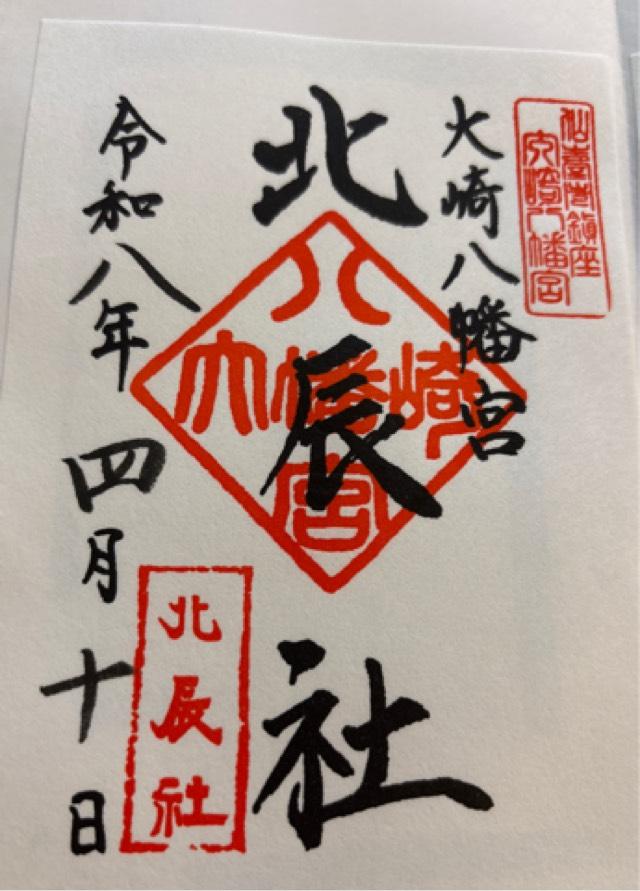 仙臺市鎮座
大崎八幡宮
大崎八幡宮
北辰社
八
大幡崎
宮
北辰社
令和八年四月十日